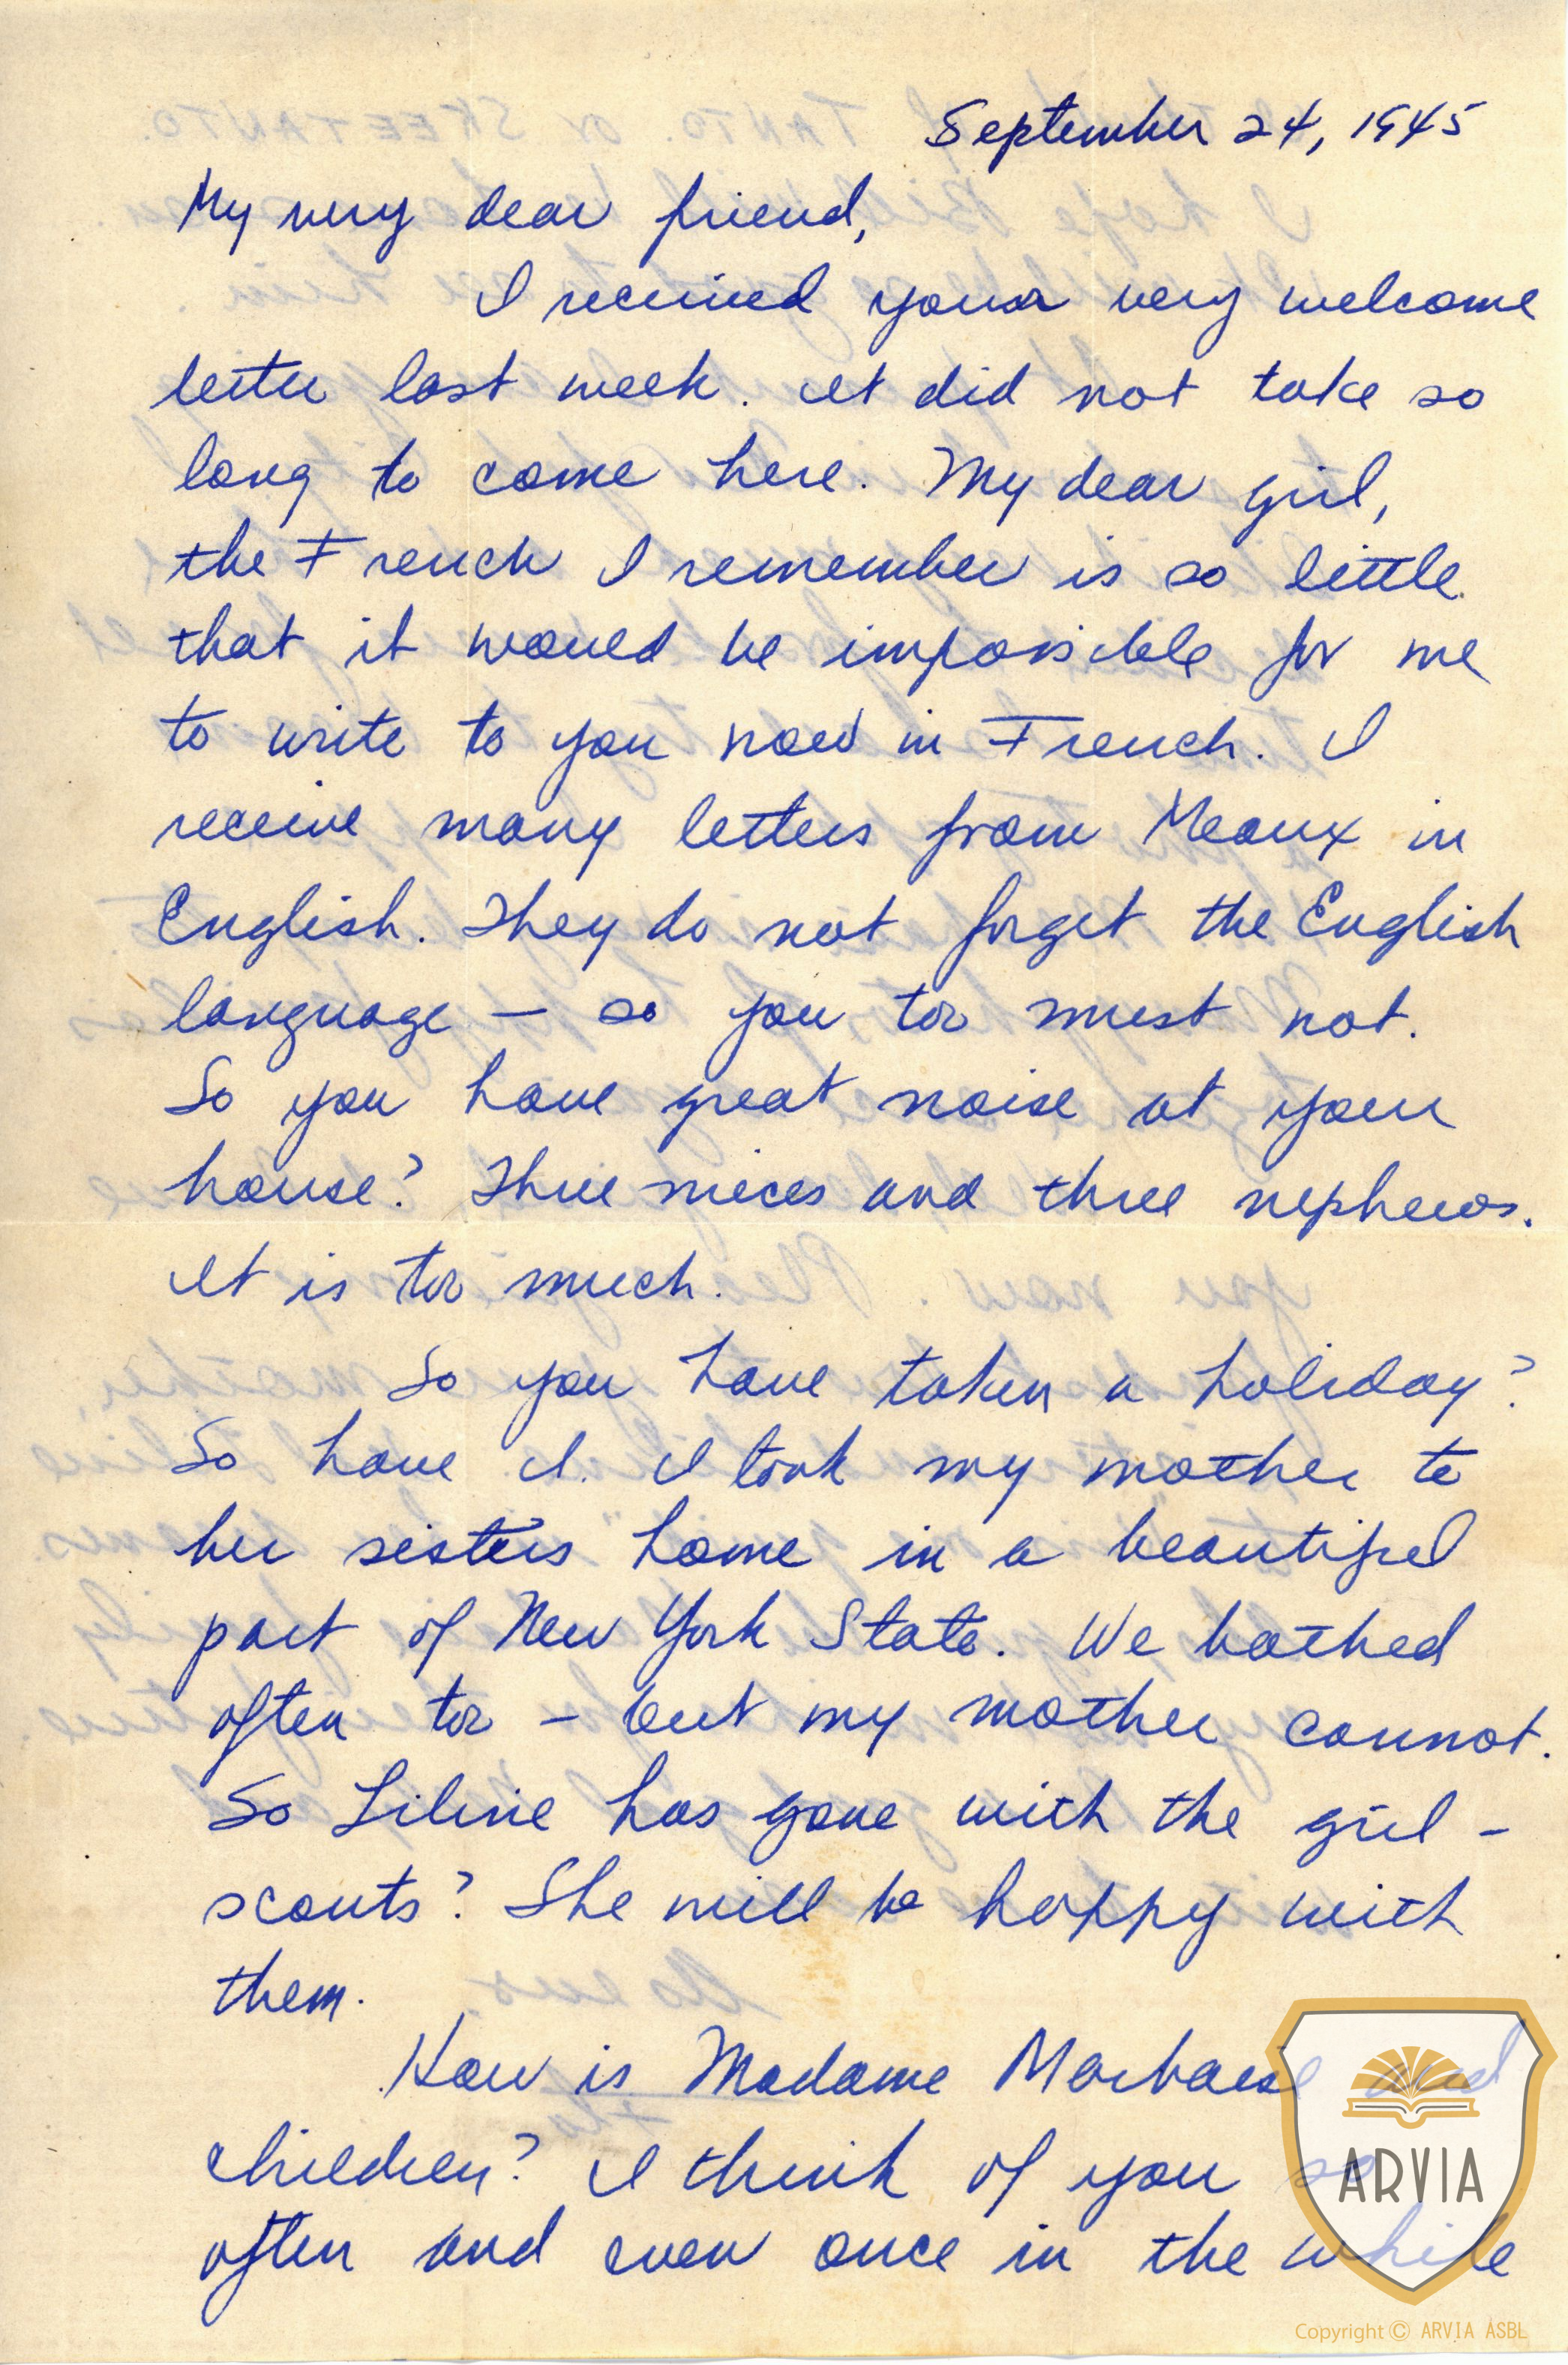 September 24, 1945
My very dear friend,
I received your very welcome
letter last week. It did not take so
long to come here. My dear girl,
the French I remember is so little
that it would be impossible for me
to write to you now in French. I
receive many letters from Meaux in
English. They do not forget the English
language — so you too must not.
So you have great noise at your
house? Three nieces and three nephews.
It is too much.
So you have taken a holiday?
So have I. I took my mother to
her sisters home in a beautiful
part of New York State. We bathed
often too — but my mother cannot.
So Liline has gone with the girl -
scouts? She will be happy with
them.
How is Madame and
children? I think of you so
often and even once in the while
ARVIA
Copyright © ARVIA ASBL